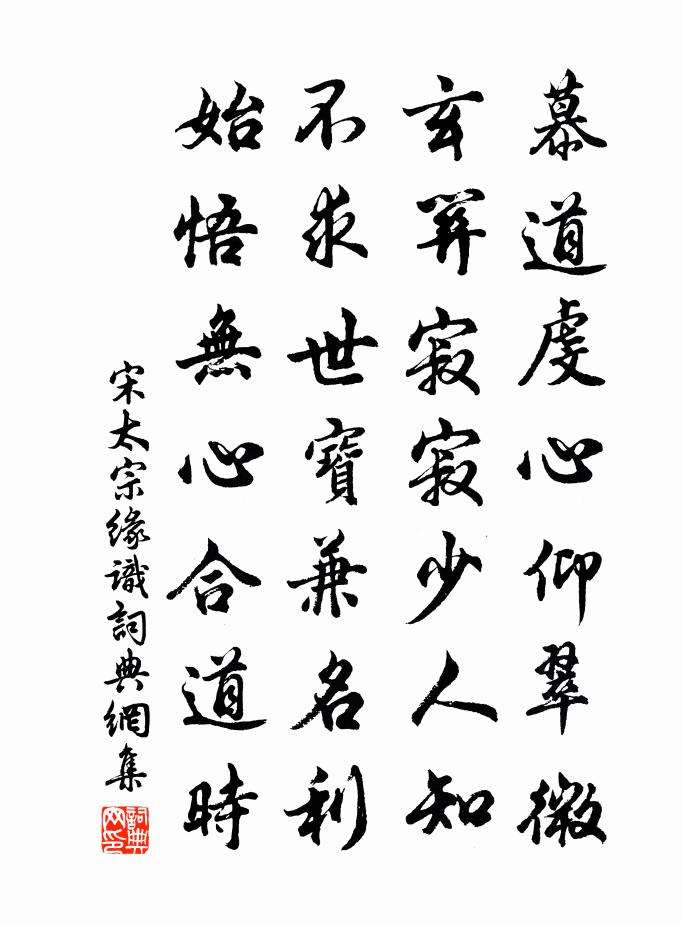 慕道虔心仰翠微
玄寂寂少人知
不求世寶兼名利
始悟無心合道時
宋太宗緣識詞典網集
詞典网印